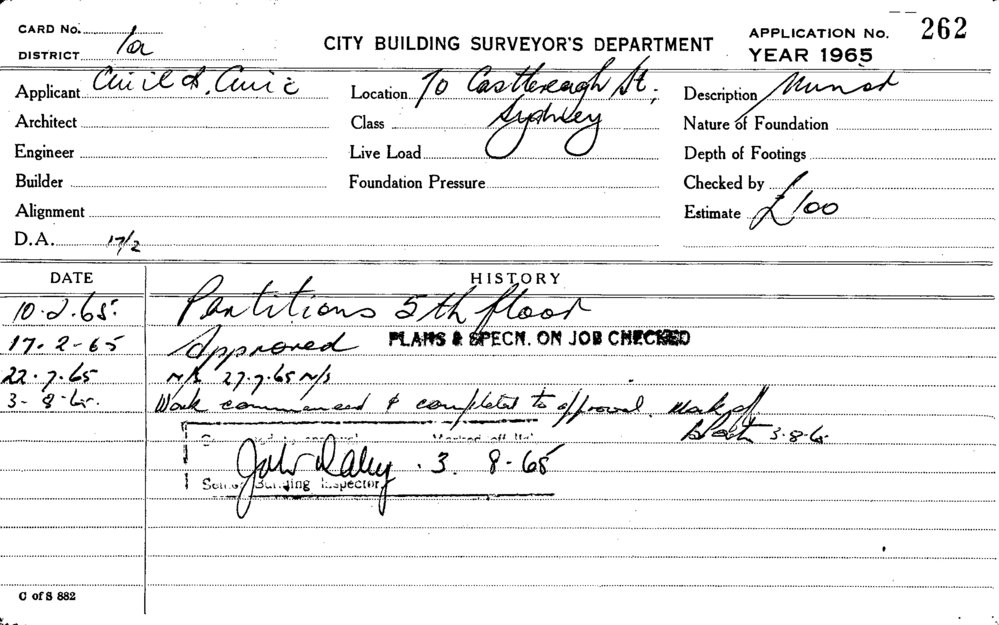 CARD No.
1a
DISTRICT
CITY BUILDING SURVEYOR'S DEPARTMENT
APPLICATION No. 262
YEAR 1965
Applicant Civil & Civic
Location 70 Castlereagh St, Sydney
Description Minor
Architect
Class
Nature of Foundation
Engineer
Live Load
Depth of Footings
Builder
Foundation Pressure
Checked by
Alignment
Estimate £100
D.A. 17/2
DATE HISTORY
10.2.65. Partitions 5th floor
17.2-65 Approved PLANS & SPECN. ON JOB CHECKED
22.7.65 N/S 27.7.65 N/S
3-8-65. Work commenced & completed to approval. Mark off.
3-8-65
John Daley . 3. 8-65
Senior Building Inspector
C of S 882